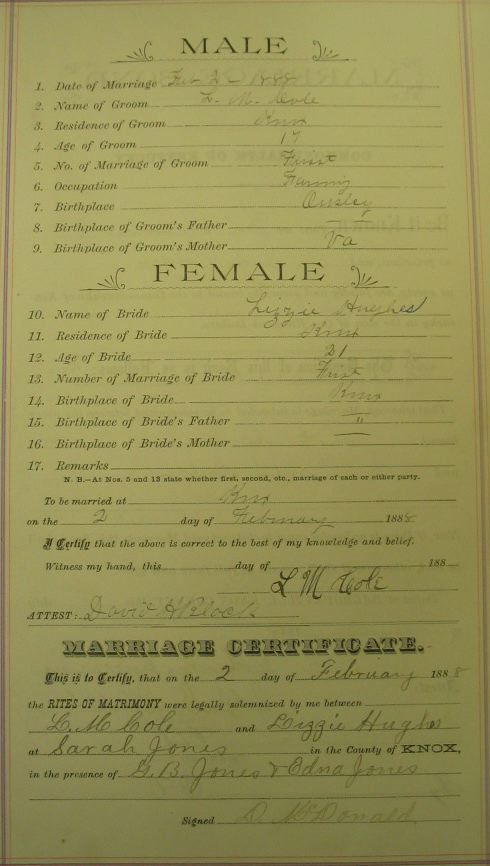 MALE
1. Date of Marriage Feb 2 1888
2. Name of Groom L. M. Cole
3. Residence of Groom Knox
4. Age of Groom 17
5. No. of Marriage of Groom First
6. Occupation Farming
7. Birthplace Owsley
8. Birthplace of Groom's Father —
9. Birthplace of Groom's Mother Va
FEMALE
10. Name of Bride Lizzie Hughes
11. Residence of Bride Knox
12. Age of Bride 21
13. Number of Marriage of Bride First
14. Birthplace of Bride Knox
15. Birthplace of Bride's Father "
16. Birthplace of Bride's Mother —
17. Remarks
N. B.—At Nos. 5 and 13 state whether first, second, etc., marriage of each or either party.
To be married at Knox
on the 2 day of February 1888
I Certify that the above is correct to the best of my knowledge and belief.
Witness my hand, this day of 188
L M Cole
ATTEST: David H Black
MARRIAGE CERTIFICATE.
This is to Certify, that on the 2 day of February 1888
the RITES OF MATRIMONY were legally solemnized by me between
L. M. Cole and Lizzie Hughes
at Sarah Jones in the County of KNOX,
in the presence of G. B. Jones & Edna Jones
Signed D. McDonald